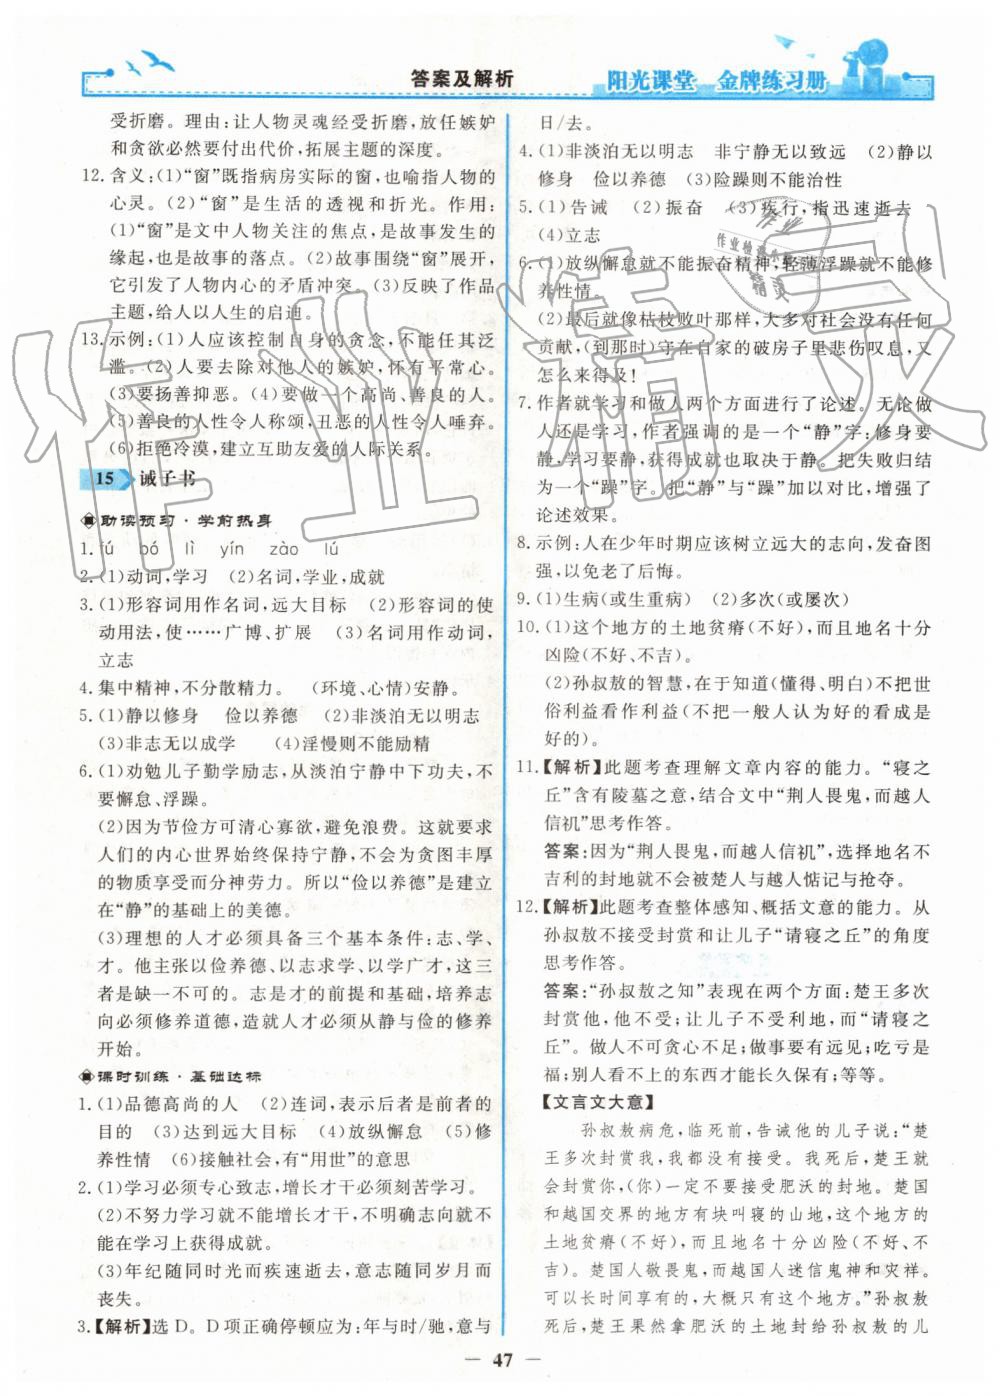 答案及解析
阳光课堂 金牌练习册
受折磨。理由:让人物灵魂经受折磨,放任嫉妒
和贪欲必然要付出代价,拓展主题的深度。
12. 含义:(1)“窗”既指病房实际的窗,也喻指人物的
心灵。(2)“窗”是生活的透视和折光。作用:
(1)“窗”是文中人物关注的焦点,是故事发生的
缘起,也是故事的落点。(2)故事围绕“窗”展开,
它引发了人物内心的矛盾冲突。(3)反映了作品
主题,给人以人生的启迪。
13. 示例:(1)人应该控制自身的贪念,不能任其泛
滥。(2)人要去除对他人的嫉妒,怀有平常心。
(3)要扬善抑恶。(4)要做一个高尚、善良的人。
(5)善良的人性令人称颂,丑恶的人性令人唾弃。
(6)拒绝冷漠,建立互助友爱的人际关系。
15 诫子书
助读预习·学前热身
1. fú bó lì yín zào lú
2. (1)动词,学习 (2)名词,学业,成就
3. (1)形容词用作名词,远大目标 (2)形容词的使
动用法,使……广博、扩展 (3)名词用作动词,
立志
4. 集中精神,不分散精力。 (环境、心情)安静。
5. (1)静以修身 俭以养德 (2)非淡泊无以明志
(3)非志无以成学 (4)淫慢则不能励精
6. (1)劝勉儿子勤学励志,从淡泊宁静中下功夫,不
要懈怠、浮躁。
(2)因为节俭方可清心寡欲,避免浪费。这就要求
人们的内心世界始终保持宁静,不会为贪图丰厚
的物质享受而分神劳力。所以“俭以养德”是建立
在“静”的基础上的美德。
(3)理想的人才必须具备三个基本条件:志、学、
才。他主张以俭养德、以志求学、以学广才,这三
者是缺一不可的。志是才的前提和基础,培养志
向必须修养道德,造就人才必须从静与俭的修养
开始。
课时训练·基础达标
1. (1)品德高尚的人 (2)连词,表示后者是前者的
目的 (3)达到远大目标 (4)放纵懈怠 (5)修
养性情 (6)接触社会,有“用世”的意思
2. (1)学习必须专心致志,增长才干必须刻苦学习。
(2)不努力学习就不能增长才干,不明确志向就不
能在学习上获得成就。
(3)年纪随同时光而疾速逝去,意志随同岁月而
丧失。
3.【解析】选 D。D 项正确停顿应为:年与时/驰,意与
日/去。
4. (1)非淡泊无以明志 非宁静无以致远 (2)静以
修身 俭以养德 (3)险躁则不能治性
5. (1)告诫 (2)振奋 (3)疾行,指迅速逝去
(4)立志
6. (1)放纵懈怠就不能振奋精神,轻薄浮躁就不能修
养性情。
(2)最后就像枯枝败叶那样,大多对社会没有任何
贡献,(到那时)守在自家的破房子里悲伤叹息,又
怎么来得及!
7. 作者就学习和做人两个方面进行了论述。无论做
人还是学习,作者强调的是一个“静”字:修身要
静,学习要静,获得成就也取决于静。把失败归结
为一个“躁”字。把“静”与“躁”加以对比,增强了
论述效果。
8. 示例:人在少年时期应该树立远大的志向,发奋图
强,以免老了后悔。
9. (1)生病(或生重病) (2)多次(或屡次)
10. (1)这个地方的土地贫瘠(不好),而且地名十分
凶险(不好、不吉)。
(2)孙叔敖的智慧,在于知道(懂得、明白)不把世
俗利益看作利益(不把一般人认为好的看成是
好的)。
11.【解析】此题考查理解文章内容的能力。“寝之
丘”含有陵墓之意,结合文中“荆人畏鬼,而越人
信禨”思考作答。
答案:因为“荆人畏鬼,而越人信禨”,选择地名不
吉利的封地就不会被楚人与越人惦记与抢夺。
12.【解析】此题考查整体感知、概括文意的能力。从
孙叔敖不接受封赏和让儿子“请寝之丘”的角度
思考作答。
答案:“孙叔敖之知”表现在两个方面:楚王多次
封赏他,他不受;让儿子不受利地,而“请寝之
丘”。做人不可贪心不足;做事要有远见;吃亏是
福;别人看不上的东西才能长久保有;等等。
【文言文大意】
孙叔敖病危,临死前,告诫他的儿子说:“楚
王多次封赏我,我都没有接受。我死后,楚王就
会封赏你,(你)一定不要接受肥沃的封地。楚国
和越国交界的地方有块叫寝的山地,这个地方的
土地贫瘠(不好),而且地名十分凶险(不好、不
吉)。楚国人敬畏鬼,而越国人迷信鬼神和灾祥。
可以长时间享有的,大概只有这个地方。”孙叔敖
死后,楚王果然拿肥沃的土地封给孙叔敖的儿
47
作业精灵
作业
作业检查小
精灵